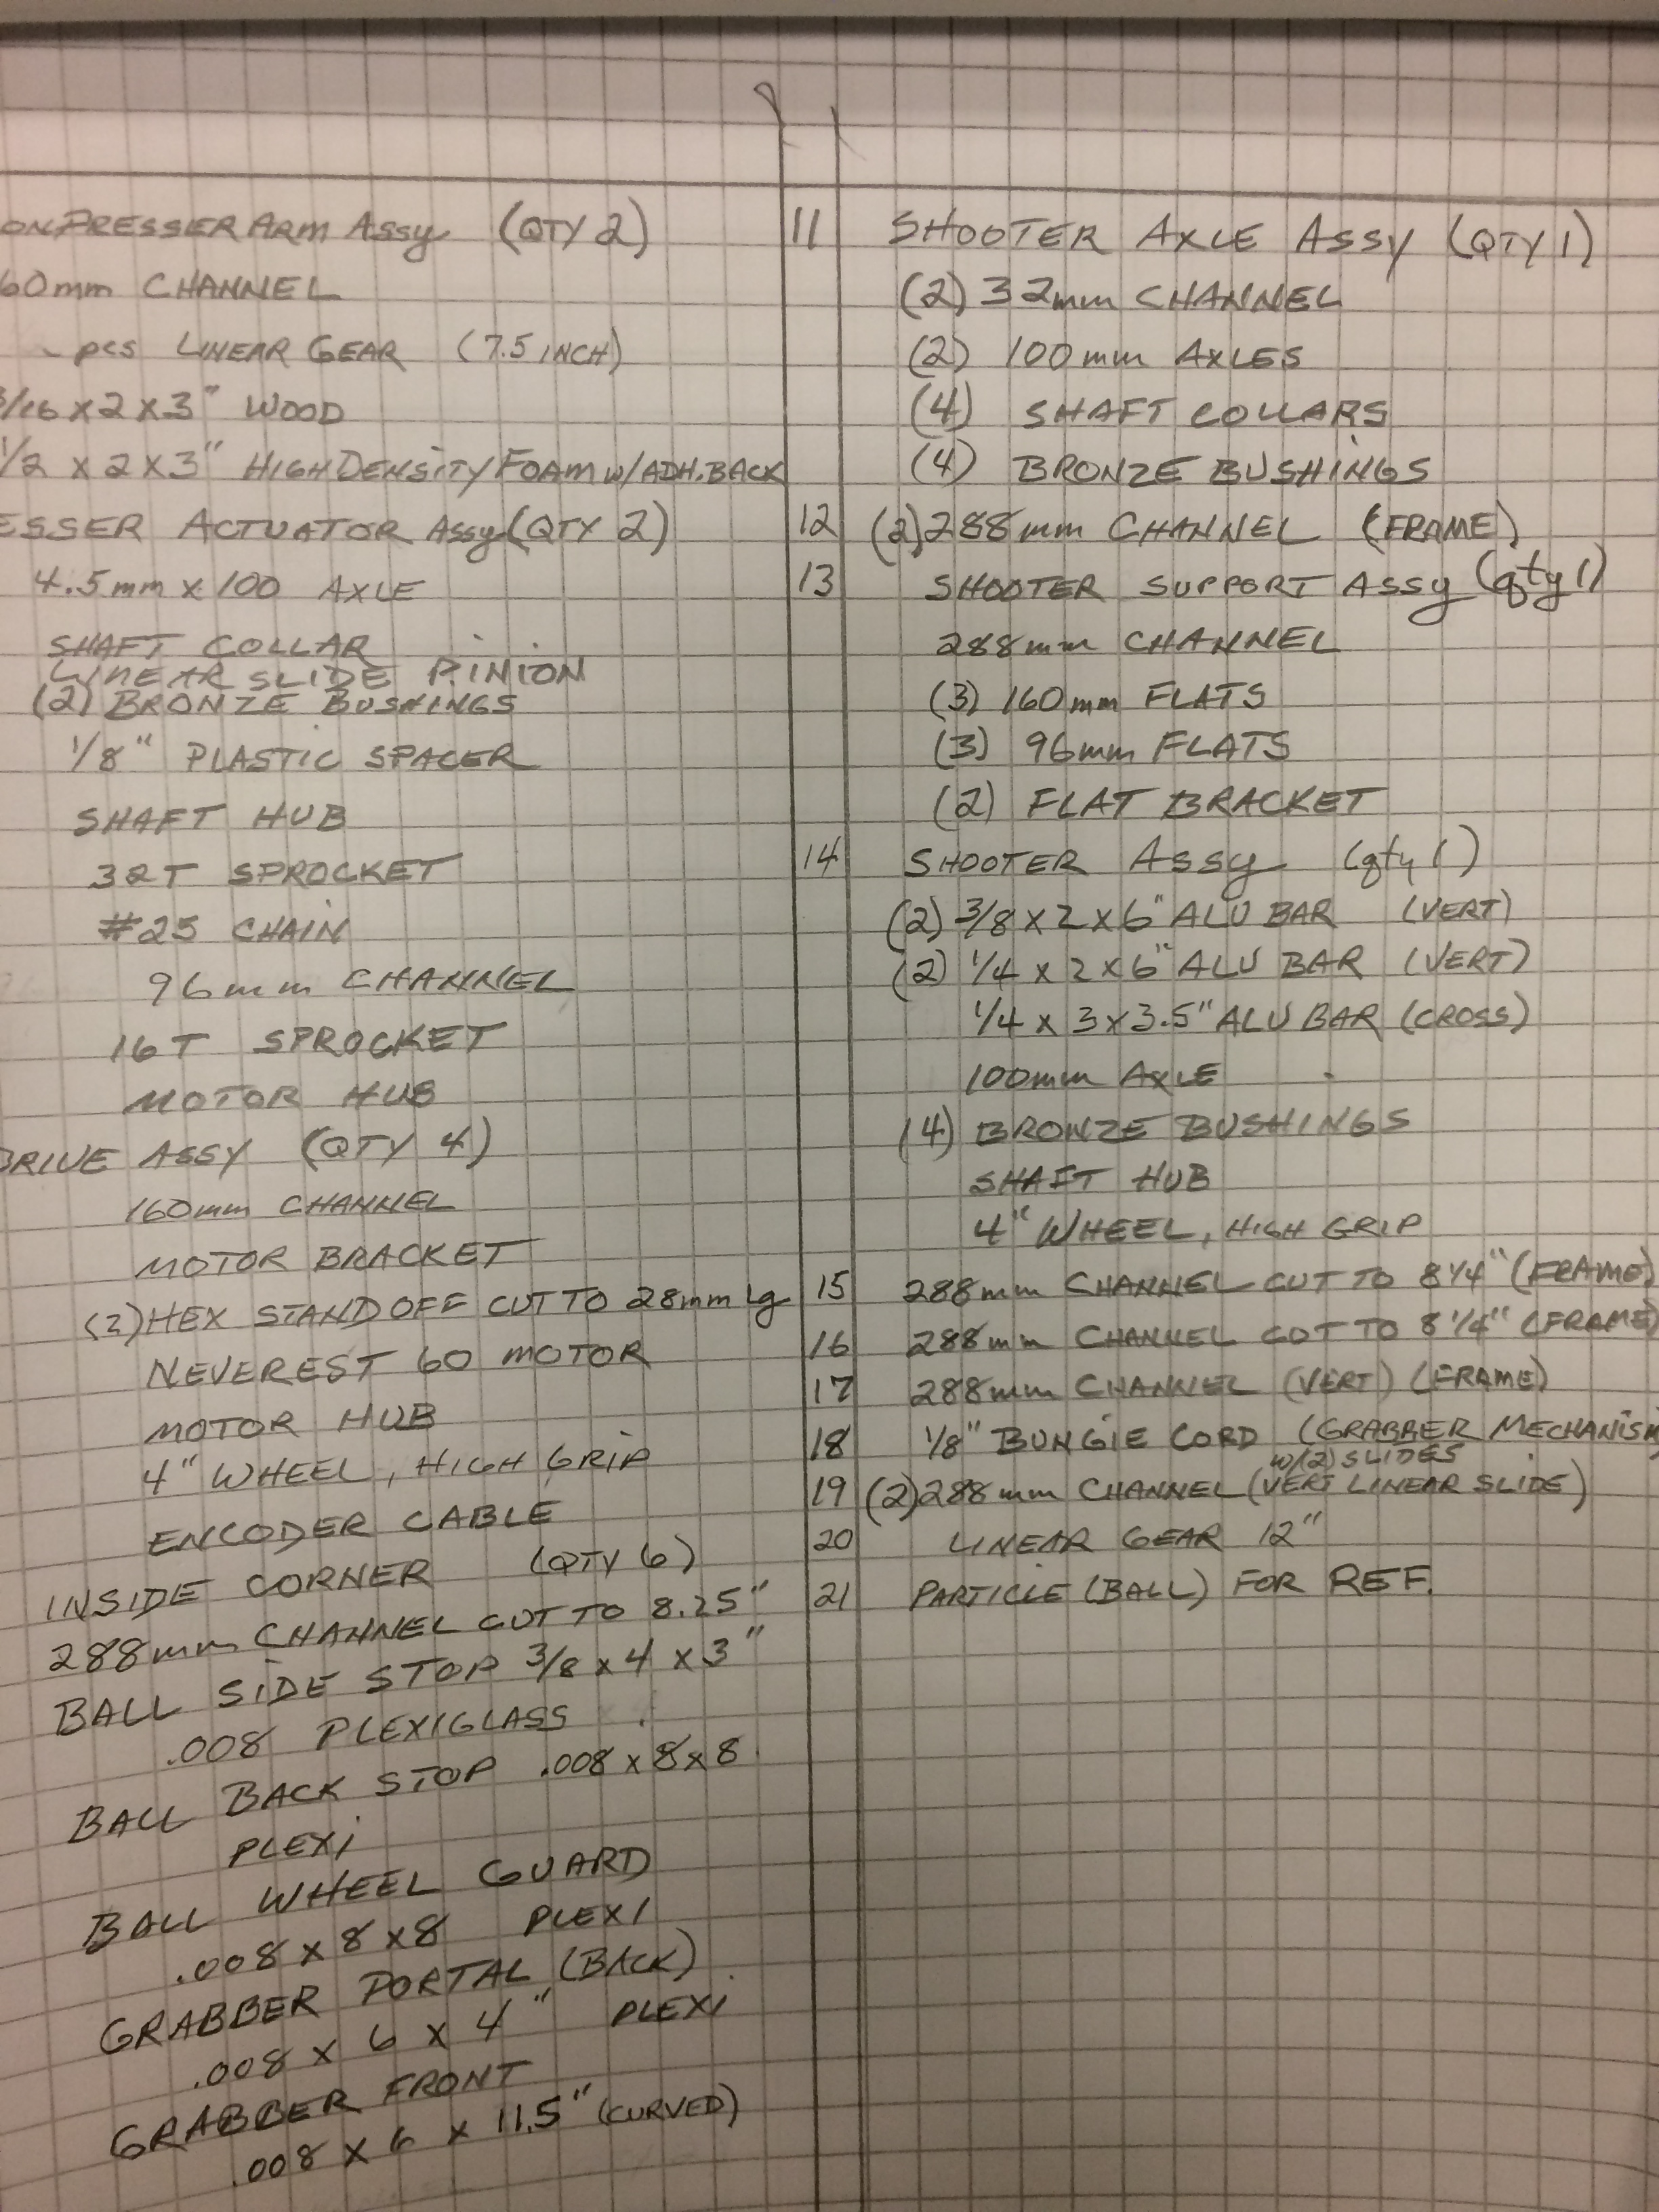 PRESSER ARM ASSY (QTY 2)
60mm CHANNEL
pcs LINEAR GEAR (7.5 INCH)
3/16 x 2 x 3" WOOD
1/2 x 2 x 3" HIGH DENSITY FOAM W/ADH. BACK
ESSER ACTUATOR ASSY (QTY 2)
4.5mm x 100 AXLE
SHAFT COLLAR
LINEAR SLIDE PINION
(2) BRONZE BUSHINGS
1/8" PLASTIC SPACER
SHAFT HUB
32T SPROCKET
#25 CHAIN
96mm CHANNEL
16T SPROCKET
MOTOR HUB
DRIVE ASSY (QTY 4)
160mm CHANNEL
MOTOR BRACKET
(2) HEX STANDOFF CUT TO 28mm Lg
NEVEREST 60 MOTOR
MOTOR HUB
4" WHEEL, HIGH GRIP
ENCODER CABLE
INSIDE CORNER (QTY 6)
288mm CHANNEL CUT TO 8.25"
BALL SIDE STOP 3/8 x 4 x 3"
.008 PLEXIGLASS
BALL BACK STOP .008 x 8 x 8
PLEXI
BALL WHEEL GUARD
.008 x 8 x 8 PLEXI
GRABBER PORTAL (BACK)
.008 x 6 x 4" PLEXI
GRABBER FRONT
.008 x 6 x 11.5" (CURVED)
11 SHOOTER AXLE ASSY (QTY 1)
(2) 32mm CHANNEL
(2) 100mm AXLES
(4) SHAFT COLLARS
(4) BRONZE BUSHINGS
12 (2) 288mm CHANNEL (FRAME)
13 SHOOTER SUPPORT ASSY (qty 1)
288mm CHANNEL
(3) 160mm FLATS
(3) 96mm FLATS
(2) FLAT BRACKET
14 SHOOTER ASSY (qty 1)
(2) 3/8 x 2 x 6" ALU BAR (VERT)
(2) 1/4 x 2 x 6" ALU BAR (VERT)
1/4 x 3 x 3.5" ALU BAR (CROSS)
100mm AXLE
(4) BRONZE BUSHINGS
SHAFT HUB
4" WHEEL, HIGH GRIP
15 288mm CHANNEL CUT TO 8 1/4" (FRAME)
16 288mm CHANNEL CUT TO 8 1/4" (FRAME)
17 288mm CHANNEL (VERT) (FRAME)
18 1/8" BUNGIE CORD (GRABBER MECHANISM
W/(2) SLIDES
19 (2) 288mm CHANNEL (VERT LINEAR SLIDE)
20 LINEAR GEAR 12"
21 PARTICLE (BALL) FOR REF.